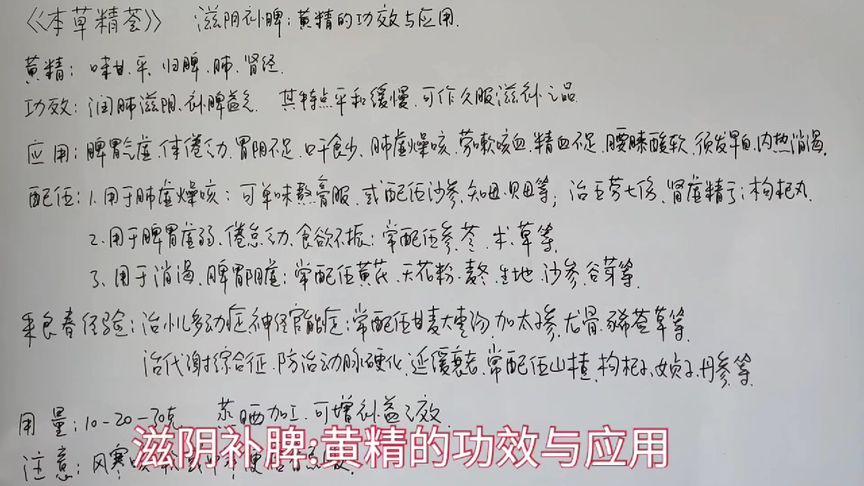 《本草精荟》 滋阴补脾:黄精的功效与应用.
黄精: 味甘、平、归脾、肺、肾经.
功效: 润肺滋阴、补脾益气 其特点平和缓慢、可作久服滋补之品
应用: 脾胃气虚、体倦乏力、胃阴不足、口干食少、肺虚燥咳、劳嗽咳血、精血不足、腰膝酸软、须发早白、内热消渴.
配伍: 1.用于肺虚燥咳: 可单味熬膏服、或配伍沙参、知母、贝母等; 治五劳七伤、肾虚精亏: 枸杞丸
2.用于脾胃虚弱、倦怠乏力、食欲不振: 常配伍参、苓、术、草等.
3.用于消渴、脾胃阴虚: 常配伍黄芪、天花粉、麦冬、生地、沙参、谷芽等.
朱良春经验: 治小儿多动症神经官能症; 常配伍甘麦大枣汤、加太子参、龙骨、豨莶草等.
治代谢综合征、防治动脉硬化、延缓衰老、常配伍山楂、枸杞子、女贞子、丹参等.
用量: 10-20-30克 蒸晒加工、可增补益之效.
注意: 风寒
滋阴补脾:黄精的功效与应用